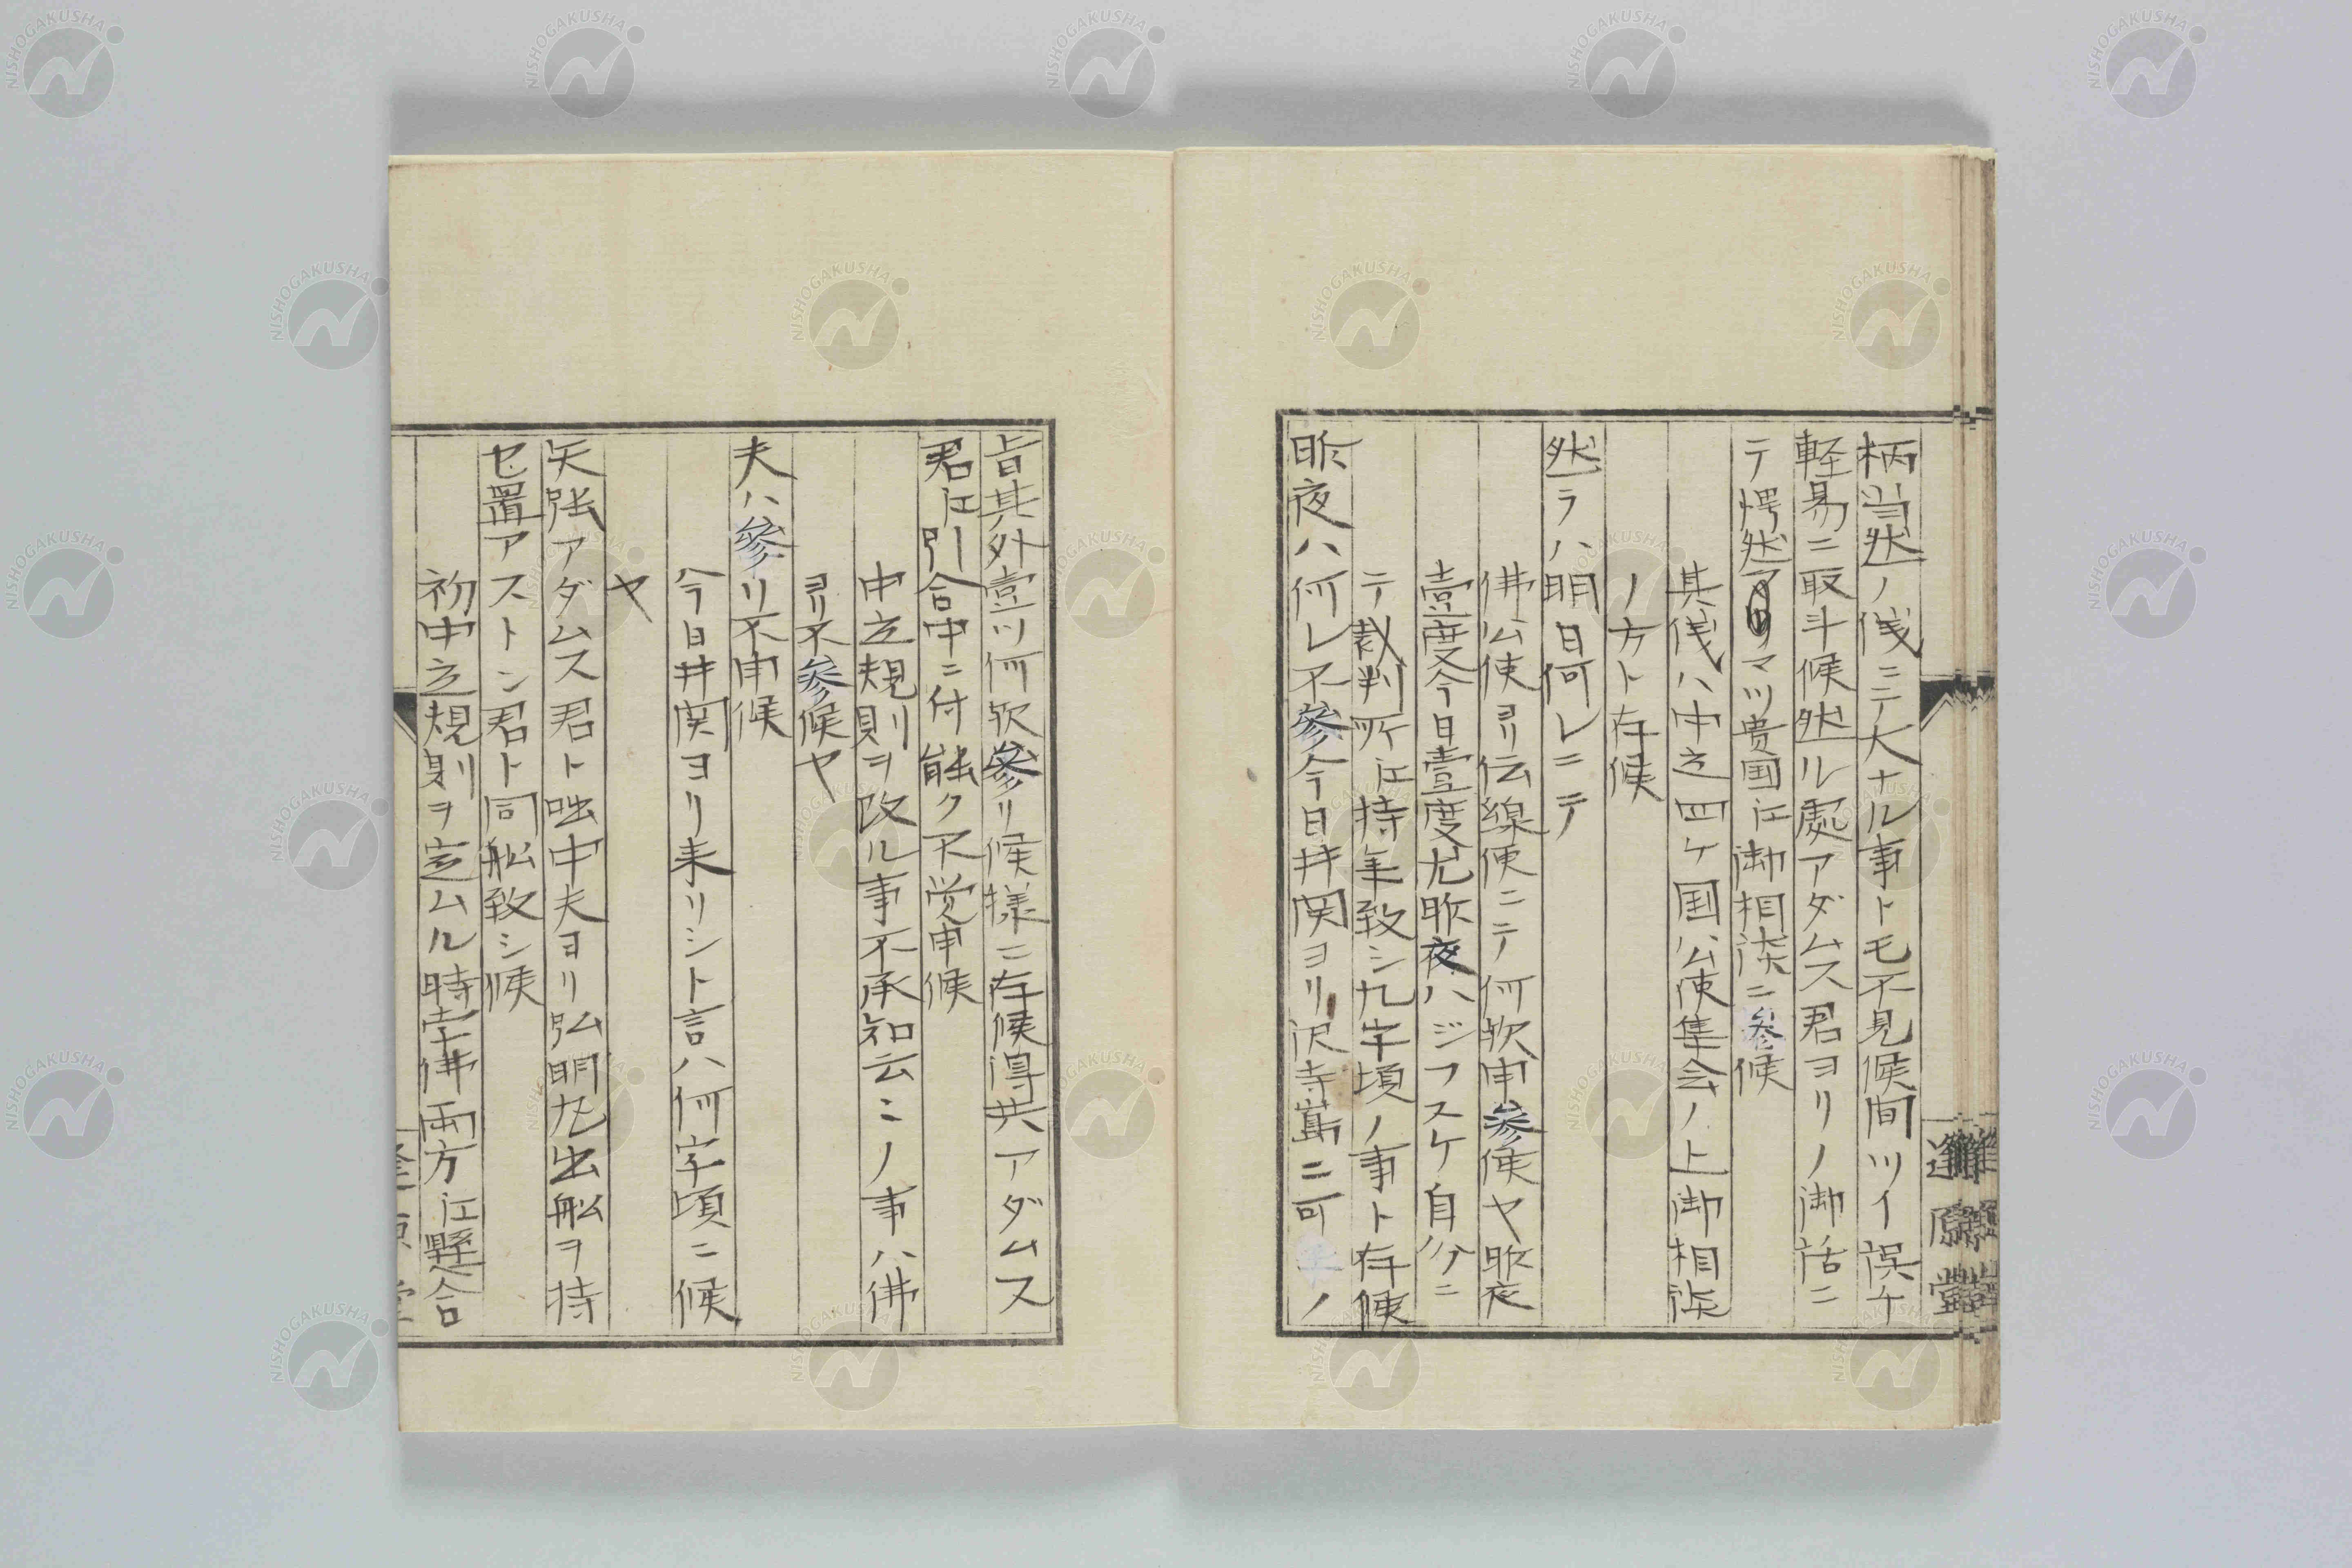 柄当然ノ儀ニテ大ナル事トモ不見候間ツイ誤ケ
軽易ニ取斗候然ル處アダムス君ヨリノ御話ニ
テ愕然アリマツ貴国江御相談ニ参候
其儀ハ中立四ケ国公使集会ノ上御相談
ノ方ト存候
然ラハ明日何レニテ
佛公使ヨリ伝線使ニテ何歟申参候ヤ昨夜
壹度今日壹度尤昨夜ハジフスケ自分ニ
テ裁判所江持年致シ九字頃ノ事ト存候
昨夜ハ何レ不参今日井関ヨリ沢寺島ニ可
ノ
旨其外壹ツ何歟参リ候様ニ存候得共アダムス
君江引合中ニ付能ク不覚申候
中立規則ヲ改ル事不承知云ニノ事ハ佛
ヨリ不参候ヤ
夫ハ参リ不申候
今日井関ヨリ来リシト言ハ何字頃ニ候
ヤ
矢張アダムス君ト咄中夫ヨリ弘明丸出船ヲ持
セ置アストン君ト同船致シ候
初中立規則ヲ定ムル時孛佛両方江懸合
逢原堂
NISHOGAKUSHA